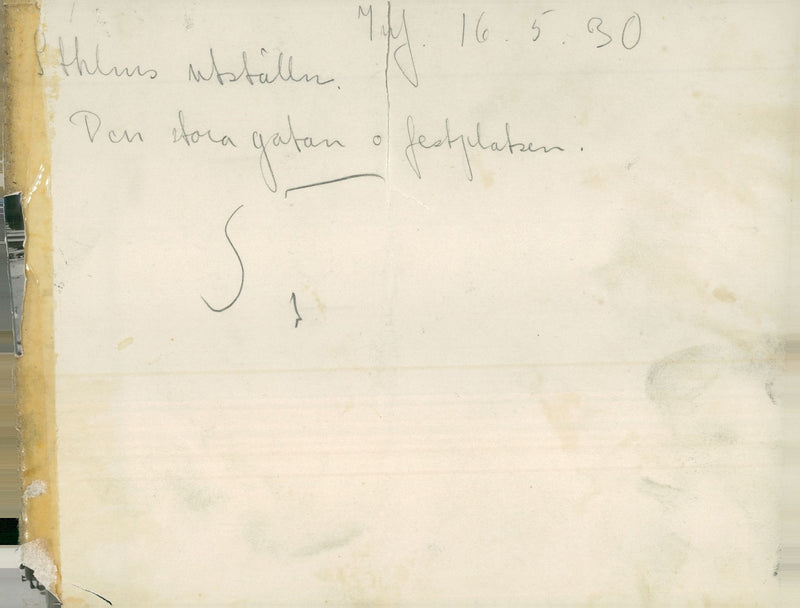 16.5.30
Sthlms utställn.
Den stora gatan o festplatsen.
S